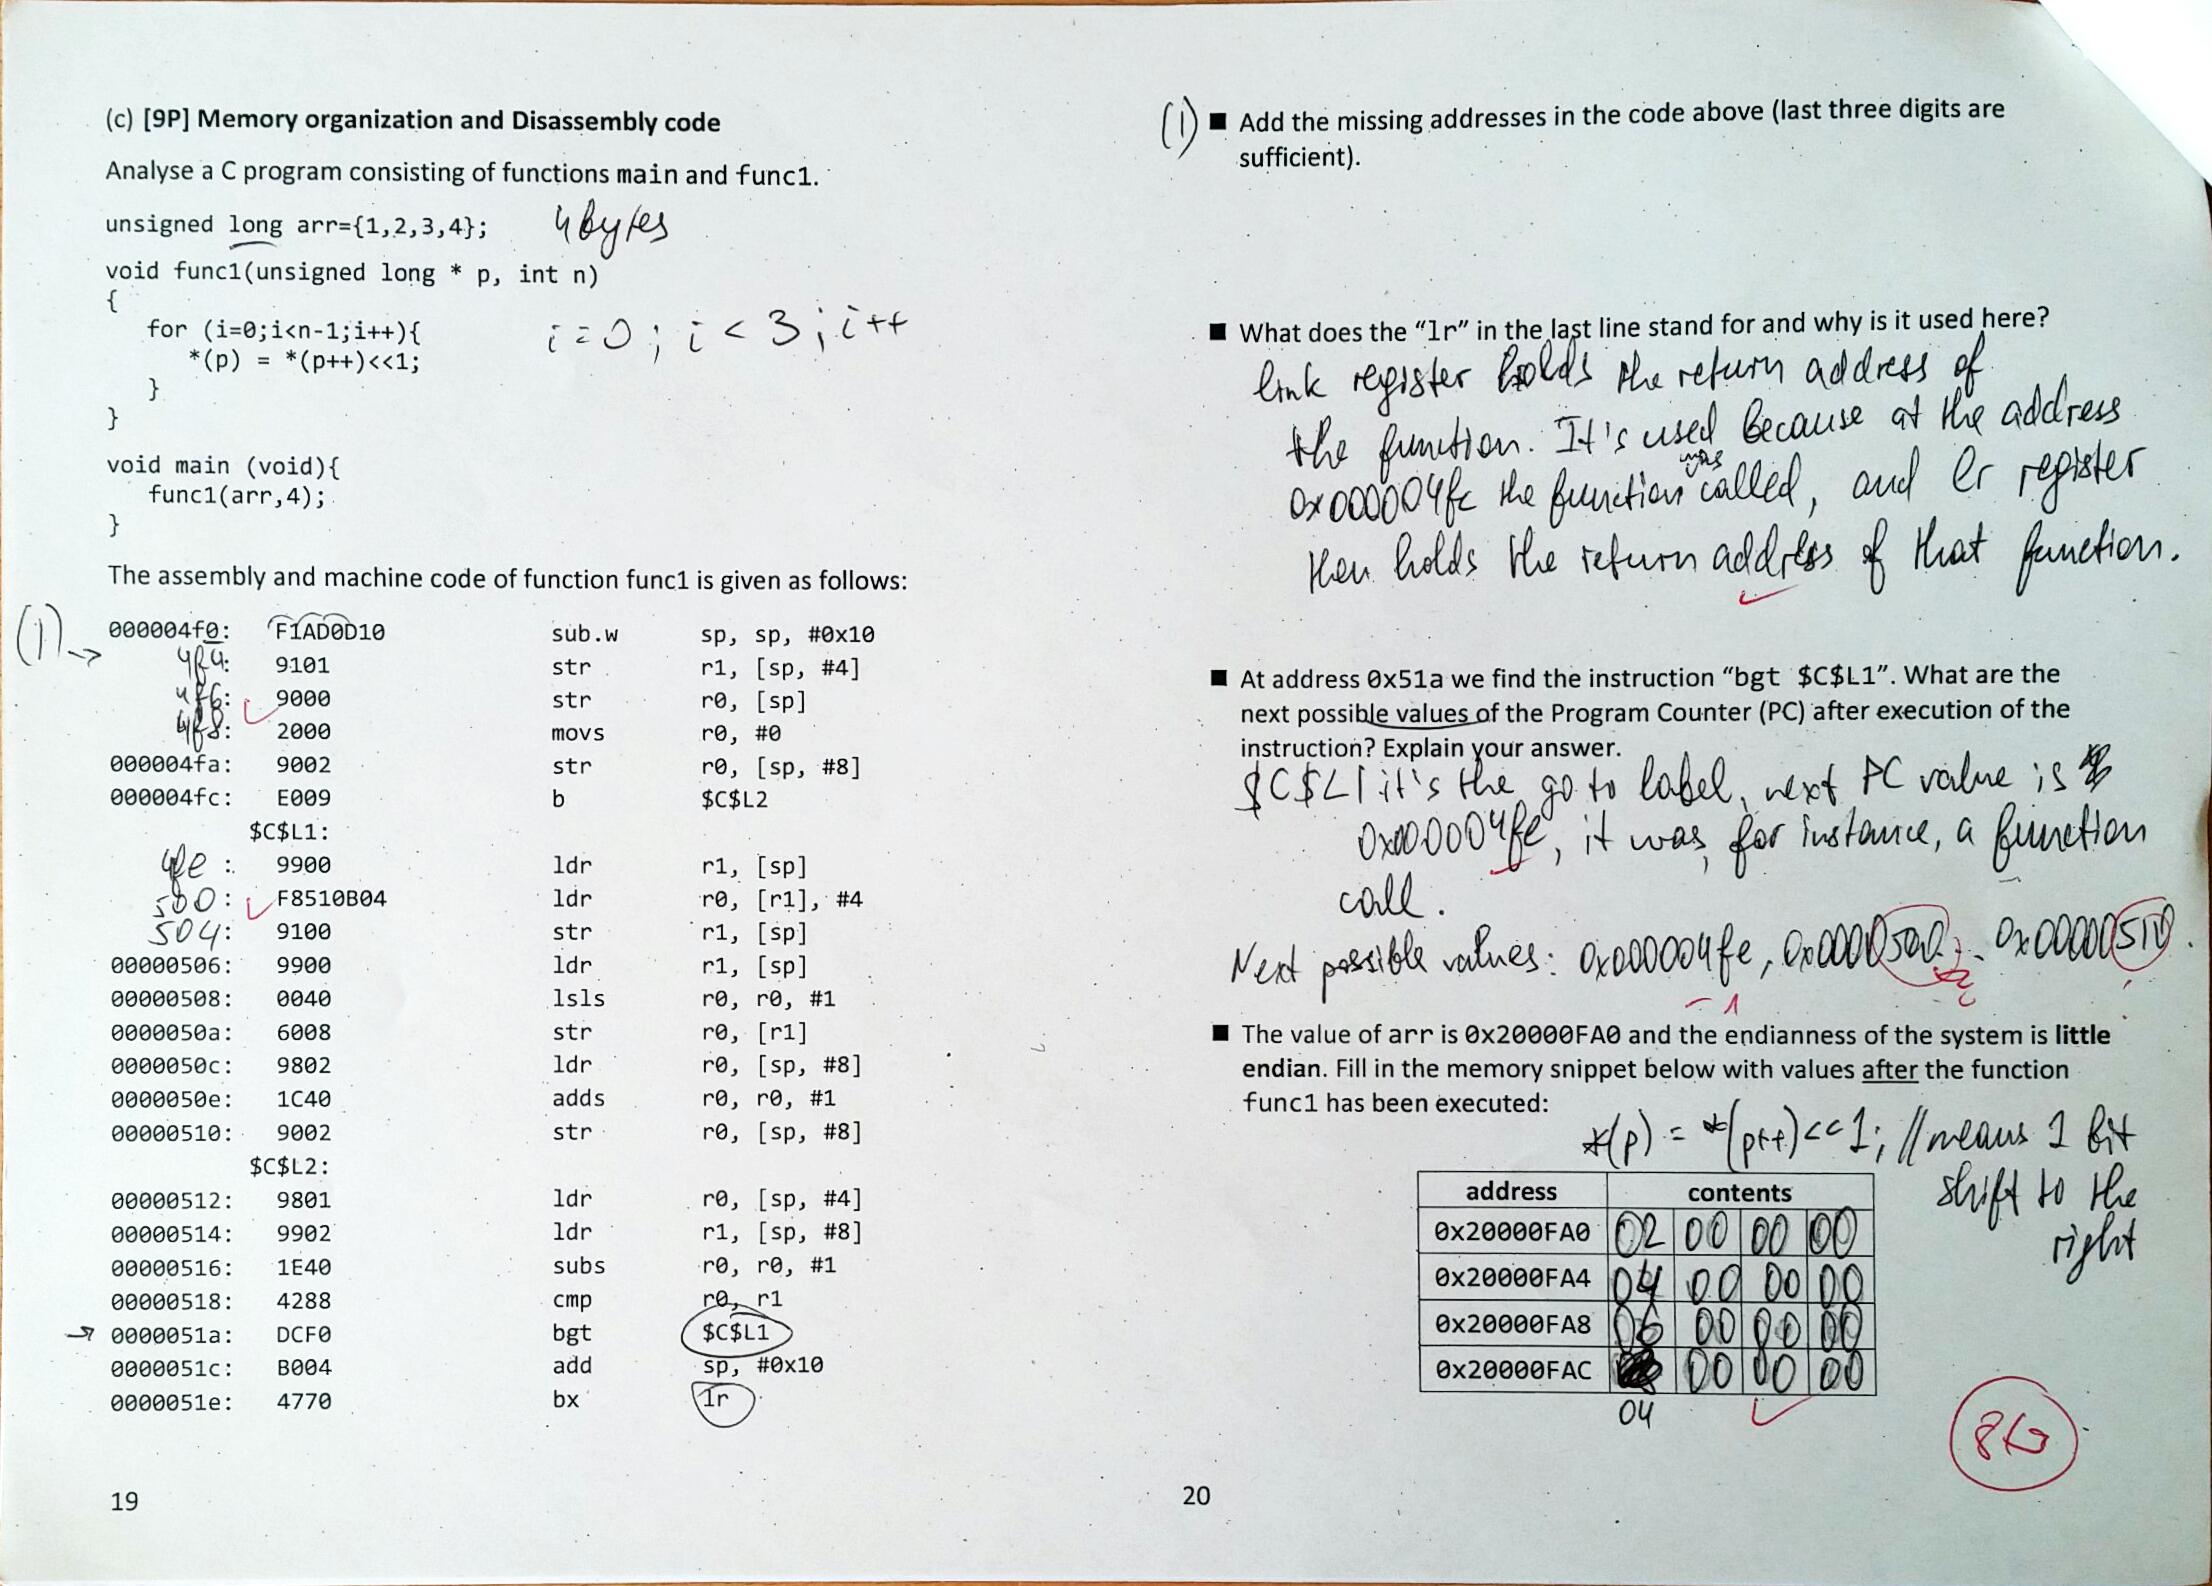 (c) [9P] Memory organization and Disassembly code
Analyse a C program consisting of functions main and func1.
unsigned long arr={1,2,3,4}; 4 bytes
void func1(unsigned long * p, int n)
{
for (i=0;i<n-1;i++){ i=0; i<3; i++
*(p) = *(p++)<<1;
}
}
void main (void){
func1(arr,4);
}
The assembly and machine code of function func1 is given as follows:
(1) → 000004f0: F1AD0D10 sub.w sp, sp, #0x10
4f4: 9101 str r1, [sp, #4]
4f6: 9000 str r0, [sp]
4f8: 2000 movs r0, #0
000004fa: 9002 str r0, [sp, #8]
000004fc: E009 b $C$L2
$C$L1:
4fe : 9900 ldr r1, [sp]
500: F8510B04 ldr r0, [r1], #4
504: 9100 str r1, [sp]
00000506: 9900 ldr r1, [sp]
00000508: 0040 lsls r0, r0, #1
0000050a: 6008 str r0, [r1]
0000050c: 9802 ldr r0, [sp, #8]
0000050e: 1C40 adds r0, r0, #1
00000510: 9002 str r0, [sp, #8]
$C$L2:
00000512: 9801 ldr r0, [sp, #4]
00000514: 9902 ldr r1, [sp, #8]
00000516: 1E40 subs r0, r0, #1
00000518: 4288 cmp r0, r1
→ 0000051a: DCF0 bgt $C$L1
0000051c: B004 add sp, #0x10
0000051e: 4770 bx lr
19
(1) ■ Add the missing addresses in the code above (last three digits are
sufficient).
■ What does the “lr” in the last line stand for and why is it used here?
link register holds the return address of
the function. It's used because at the address
0x000004fc the function was called, and lr register
then holds the return address of that function.
■ At address 0x51a we find the instruction “bgt $C$L1”. What are the
next possible values of the Program Counter (PC) after execution of the
instruction? Explain your answer.
$C$L1 it's the go to label, next PC value is
0x000004fe, it was, for instance, a function
call.
Next possible values: 0x000004fe, 0x00000500 ... 0x00000510.
-1
■ The value of arr is 0x20000FA0 and the endianness of the system is little
endian. Fill in the memory snippet below with values after the function
func1 has been executed:
*(p) = *(p++)<<1; // means 1 bit
shift to the
right
address contents
0x20000FA0 02 00 00 00
0x20000FA4 04 00 00 00
0x20000FA8 06 00 00 00
0x20000FAC 00 00 00
04
20